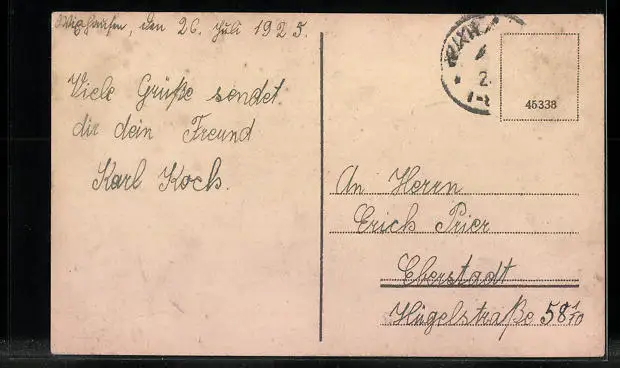 Wixhausen, den 26. Juli 1925.
Viele Grüße sendet
dir dein Freund
Karl Koch.
WIXH
2.
7-8
45338
An Herrn
Erich Prier
Eberstadt
Hügelstraße 58 1/10